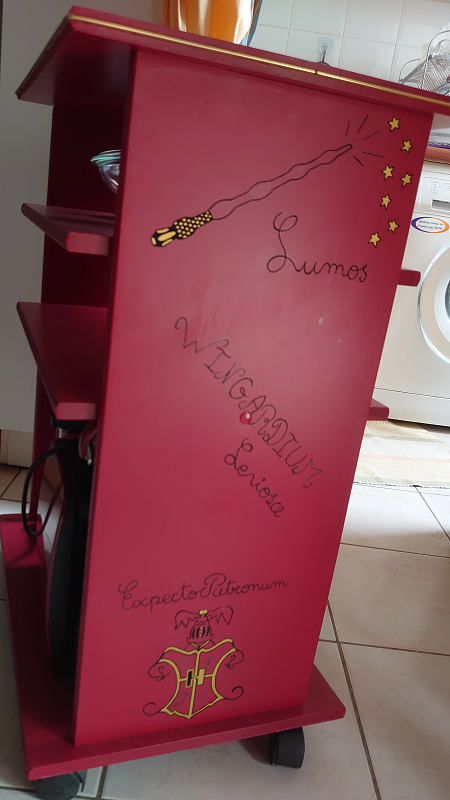 Lumos
WINGARDIUM
Leviosa
Expecto Patronum
H